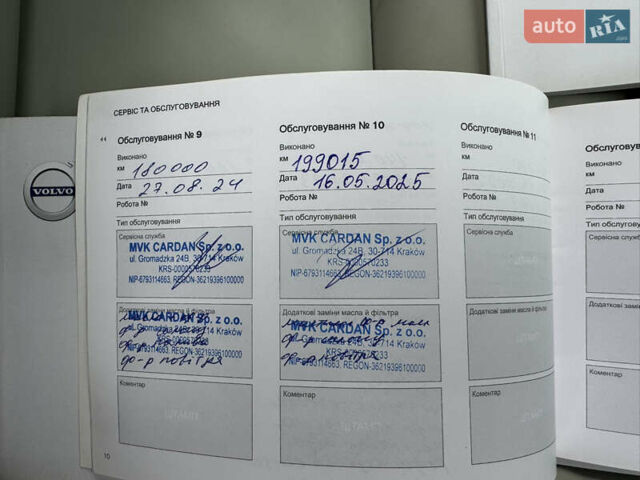 auto RIA .com
VOLVO
СЕРВІС ТА ОБСЛУГОВУВАННЯ
Обслуговування № 9
Виконано
км 180000
Дата 27.08.24
Робота №
Тип обслуговування
Сервісна служба
MVK CARDAN Sp. z o.o.
ul. Gromadzka 24B, 30-714 Kraków
KRS-0000570233
NIP-6793114663, REGON-36219396100000
Додаткові заміни масла й фільтра
MVK CARDAN Sp. z o.o.
ul. Gromadzka 24B, 30-714 Kraków
NIP-6793114663, REGON-36219396100000
ф-р повітря
Коментар
ШТАМП
10
Обслуговування № 10
Виконано
км 199015
Дата 16.05.2025
Робота №
Тип обслуговування
Сервісна служба
MVK CARDAN Sp. z o.o.
ul. Gromadzka 24B, 30-714 Kraków
KRS-0000570233
NIP-6793114663, REGON-36219396100000
Додаткові заміни масла й фільтра
MVK CARDAN Sp. z o.o.
ul. Gromadzka 24B, 30-714 Kraków
KRS-0000570233
NIP-6793114663, REGON-36219396100000
Коментар
ШТАМП
Обслуговування № 11
Виконано
км
Дата
Робота №
Тип обслуговування
Сервісна служба
Додаткові заміни масла й фільтра
Коментар
ШТАМП
Виконано
км
Дата
Робота №
Тип обслуговування
Сервісна служба
Додаткові
Коментар